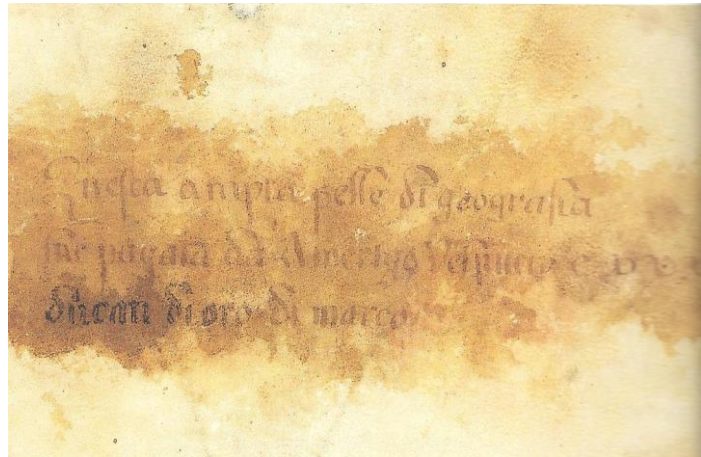 Questa ampla pelle di geografia
fue pagata da Amerigo Vespucci
ducati di oro di marco